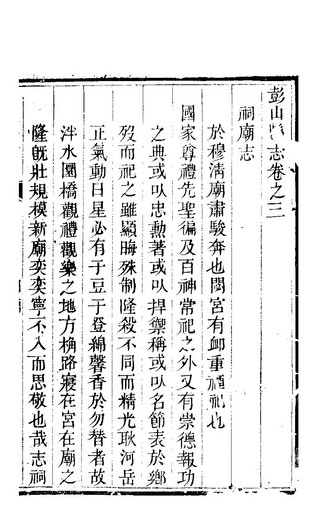 彭山縣志卷之三
祠廟志
於穆清廟肅駿奔也閟宮有侐重禋祀也
國家尊禮先聖徧及百神常祀之外又有崇德報功
之典或以忠勳著或以捍禦稱或以名節表於鄉
歿而祀之雖顯晦殊制隆殺不同而精光耿河岳
正氣動日星必有于豆于登綿馨香於勿替者故
泮水圜橋觀禮觀樂之地方桷路寢在宮在廟之
隆旣壯規模新廟奕奕寧不入而思敬也哉志祠